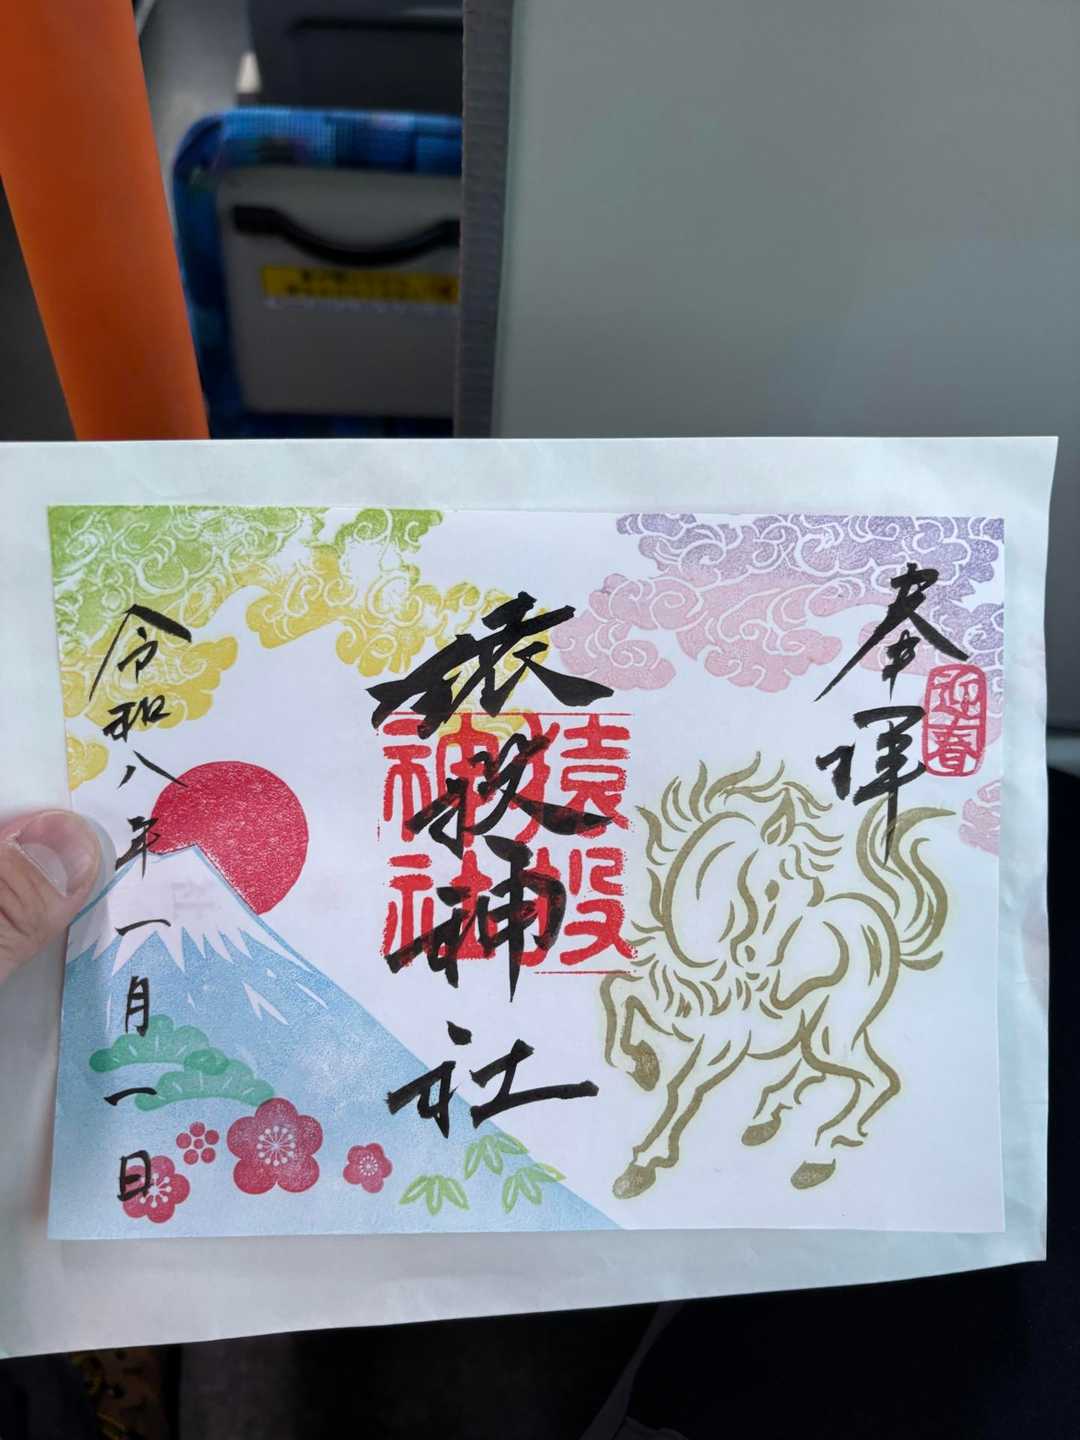 奉拝
迎春
猿投神社
猿投
神社
令和八年一月一日